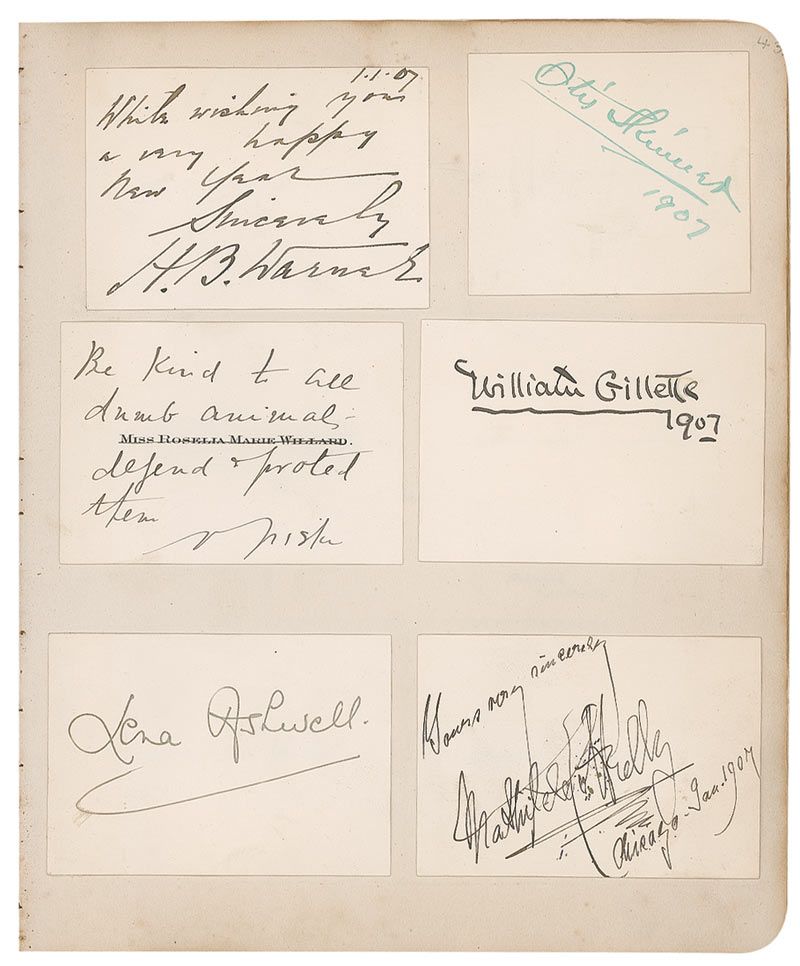 43
1.1.07
While wishing you
a very happy
New Year
Sincerely
H. B. Warner
Otis Skinner
1907
Be kind to all
dumb animals -
MISS ROSELIA MARIE WILLARD.
defend & protect
them
Fiske
William Gillette
1907
Lena Ashwell.
Yours very sincerely
Mathilde
Chicago - Jan. 1907